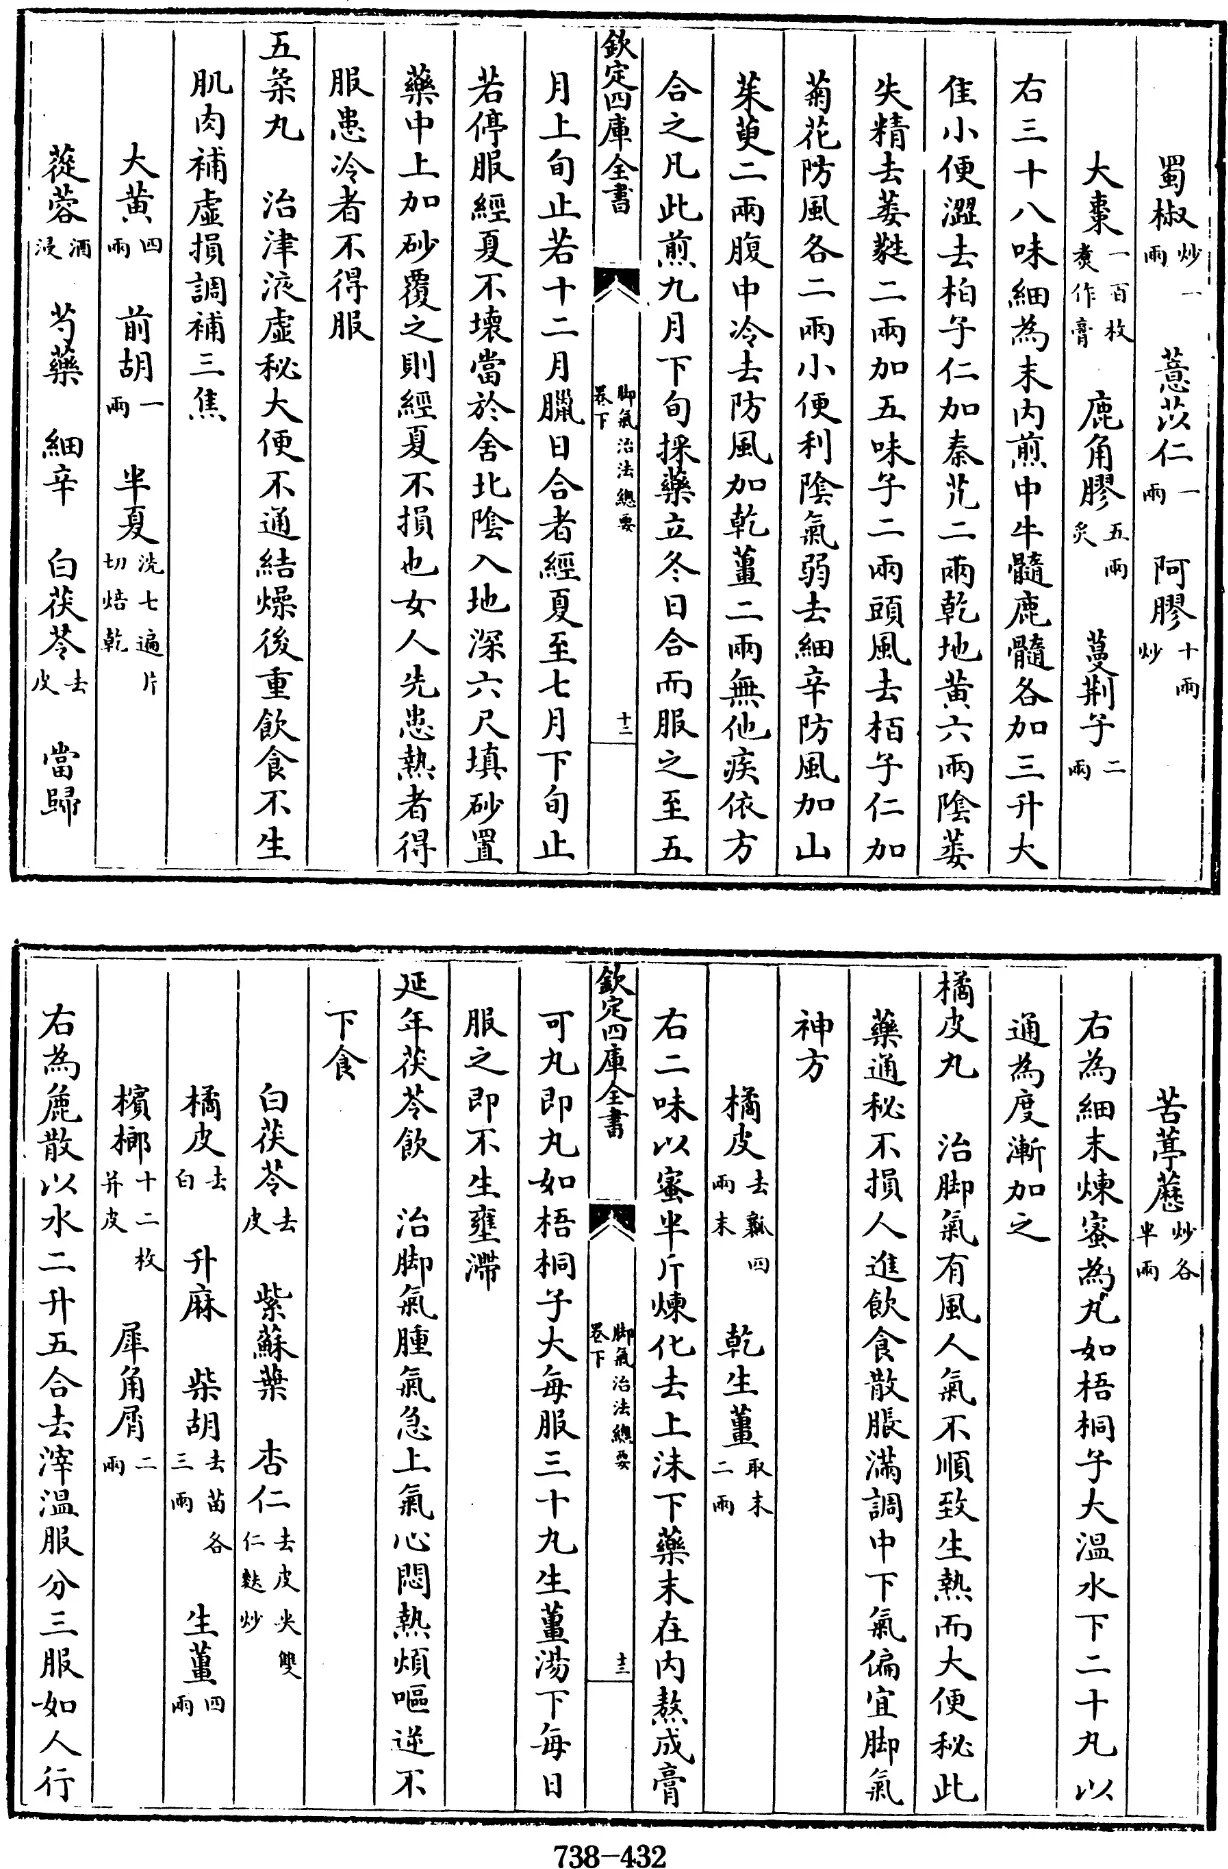 蜀椒炒一兩 薏苡仁一兩 阿膠十兩炒
大棗一百枚煑作膏 鹿角膠五兩炙 蔓荆子二兩
右三十八味細為末内煎中牛髓鹿髓各加三升大
隹小便澀去柏子仁加秦艽二兩乾地黄六兩陰萎
失精去萎蕤二兩加五味子二兩頭風去栢子仁加
菊花防風各二兩小便利陰氣弱去細辛防風加山
茱萸二兩腹中冷去防風加乾薑二兩無他疾依方
合之凡此煎九月下旬採藥立冬日合而服之至五
欽定四庫全書 脚氣治法總要卷下 十二
月上旬止若十二月臘日合者經夏至七月下旬止
若停服經夏不壞當於舍北陰入地深六尺填砂置
藥中上加砂覆之則經夏不損也女人先患熱者得
服患冷者不得服
五柔丸 治津液虛秘大便不通結燥後重飲食不生
肌肉補虛損調補三焦
大黄四兩 前胡一兩 半夏洗七遍片切焙乾
蓯蓉酒浸 芍藥 細辛 白茯苓去皮 當歸
苦葶藶炒各半兩
右為細末煉蜜為丸如梧桐子大温水下二十丸以
通為度漸加之
橘皮丸 治脚氣有風人氣不順致生熱而大便秘此
藥通秘不損人進飲食散脹滿調中下氣偏宜脚氣
神方
橘皮去瓤四兩末 乾生薑取末二兩
右二味以蜜半斤煉化去上沫下藥末在内熬成膏
欽定四庫全書 脚氣治法總要卷下 十三
可丸即丸如梧桐子大每服三十丸生薑湯下每日
服之即不生壅滯
延年茯苓飲 治脚氣腫氣急上氣心悶熱煩嘔逆不
下食
白茯苓去皮 紫蘇葉 杏仁去皮尖雙仁麩炒
橘皮去白 升麻 柴胡去苗各三兩 生薑四兩
檳榔十二枚并皮 犀角屑二兩
右為麄散以水二升五合去滓温服分三服如人行
738-432